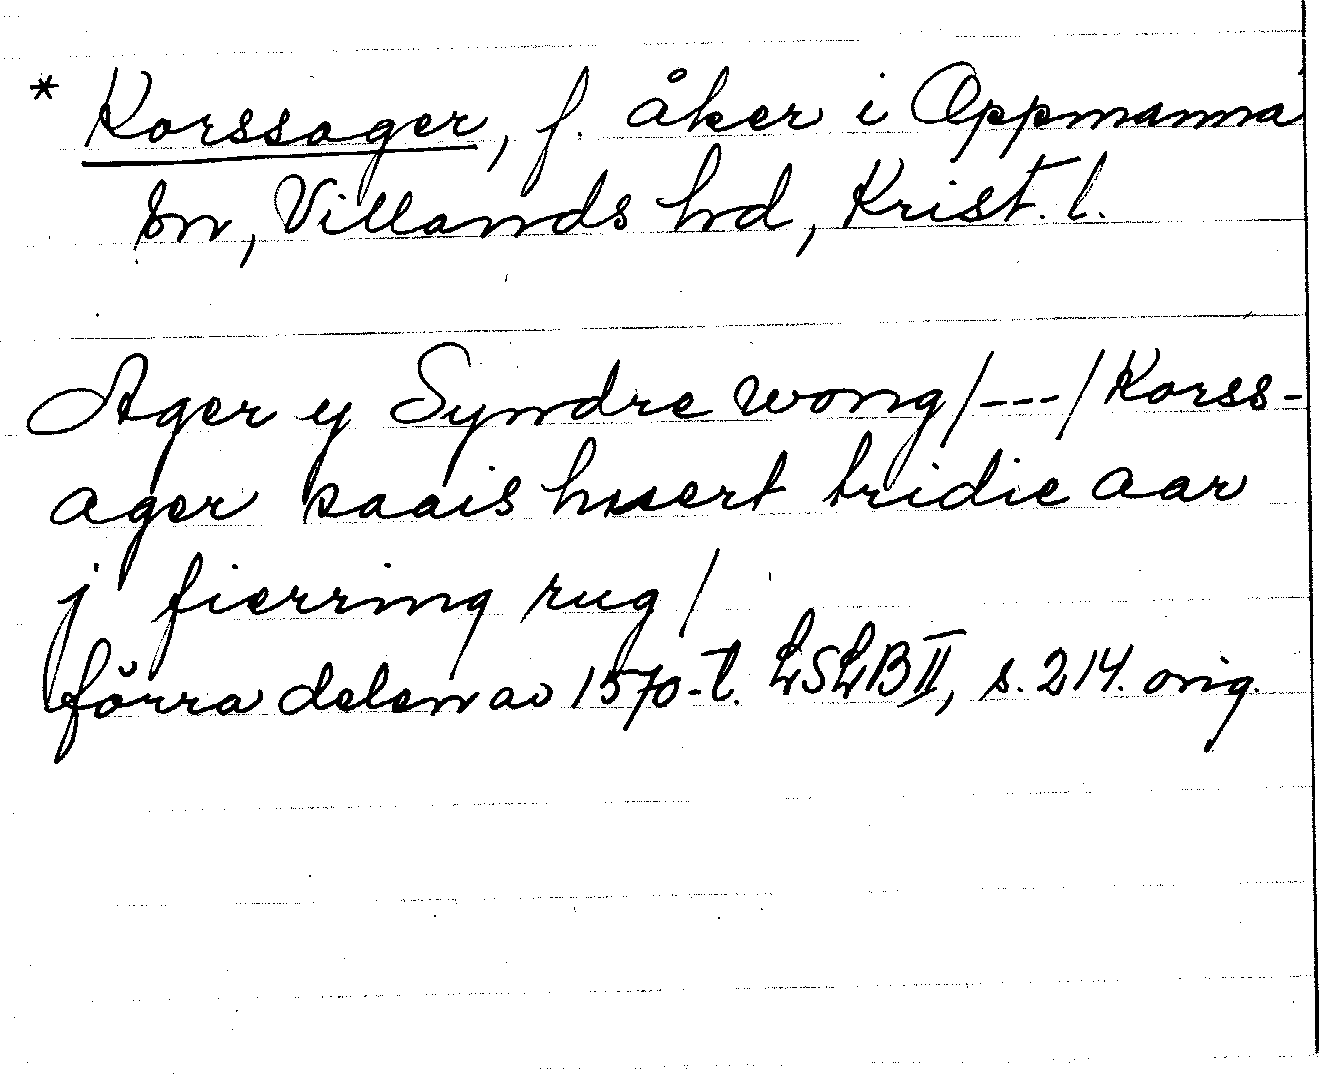 * Korssager, f. åker i Oppmanna
sn, Villands hd, Krist. l.
Ager y Syndre wong /---/ Korss-
ager saais huert tridie aar
j fierring rug /
förra delen av 1570-t. LSLB II, s. 214. orig.